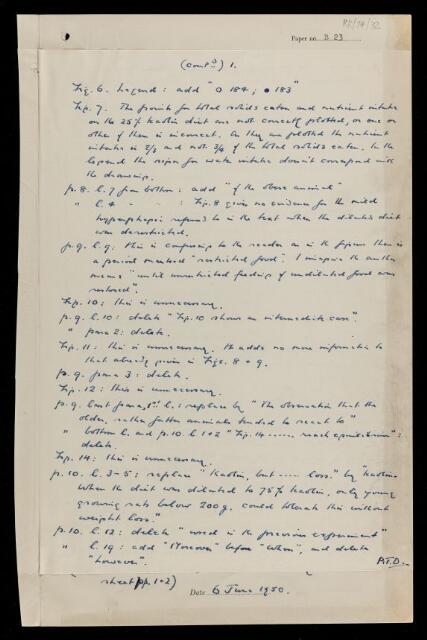 RR/74/32
Paper no. B 23
(contd) 1.
Fig. 6. Legend: add "O 184; ● 183"
Fig. 7. The points for total solids eaten and nutrient intake
on the 25% kaolin diet are not correctly plotted, or one or
other of them is incorrect. As they are plotted the nutrient
intake is 2/3 and not 3/4 of the total solids eaten. In the
legend the sign for water intake doesn't correspond with
the drawing.
p. 8. l. 7 from bottom: add "of the obese animal"
" l. 4 - - : Fig. 8 gives no evidence for the mild
hyperphagia referred to in the text when the dilute diet
was derestricted.
p. 9. l. 9: this is confusing to the reader as in the figure there is
a period marked "restricted food". I imagine the author
means "until unrestricted feeding of undiluted food was
restored".
Fig. 10: this is unnecessary.
p. 9. l. 10: delete "Fig. 10 shows an intermediate case".
" para 2: delete.
Fig. 11: this is unnecessary. It adds no more information to
that already given in Figs. 8 & 9.
p. 9. para 3: delete.
Fig. 12: this is unnecessary.
p. 9. last para, 1st l.: replace by "The observation that the
older, rather fatter animals tended to react to"
" bottom l. and p. 10. l. 1+2 "Fig. 14 ...... reach equilibrium":
delete.
Fig. 14: this is unnecessary.
p. 10. l. 3-5: replace "kaolin, but ..... loss." by "kaolin.
When the diet was diluted to 75% kaolin, only young
growing rats below 200g. could tolerate this without
weight loss."
p. 10. l. 12: delete "used in the previous experiment"
" l. 19: add "Moreover" before "when", and delete
"however".
sheet (pp. 1+2)
Date 6 June 1950.